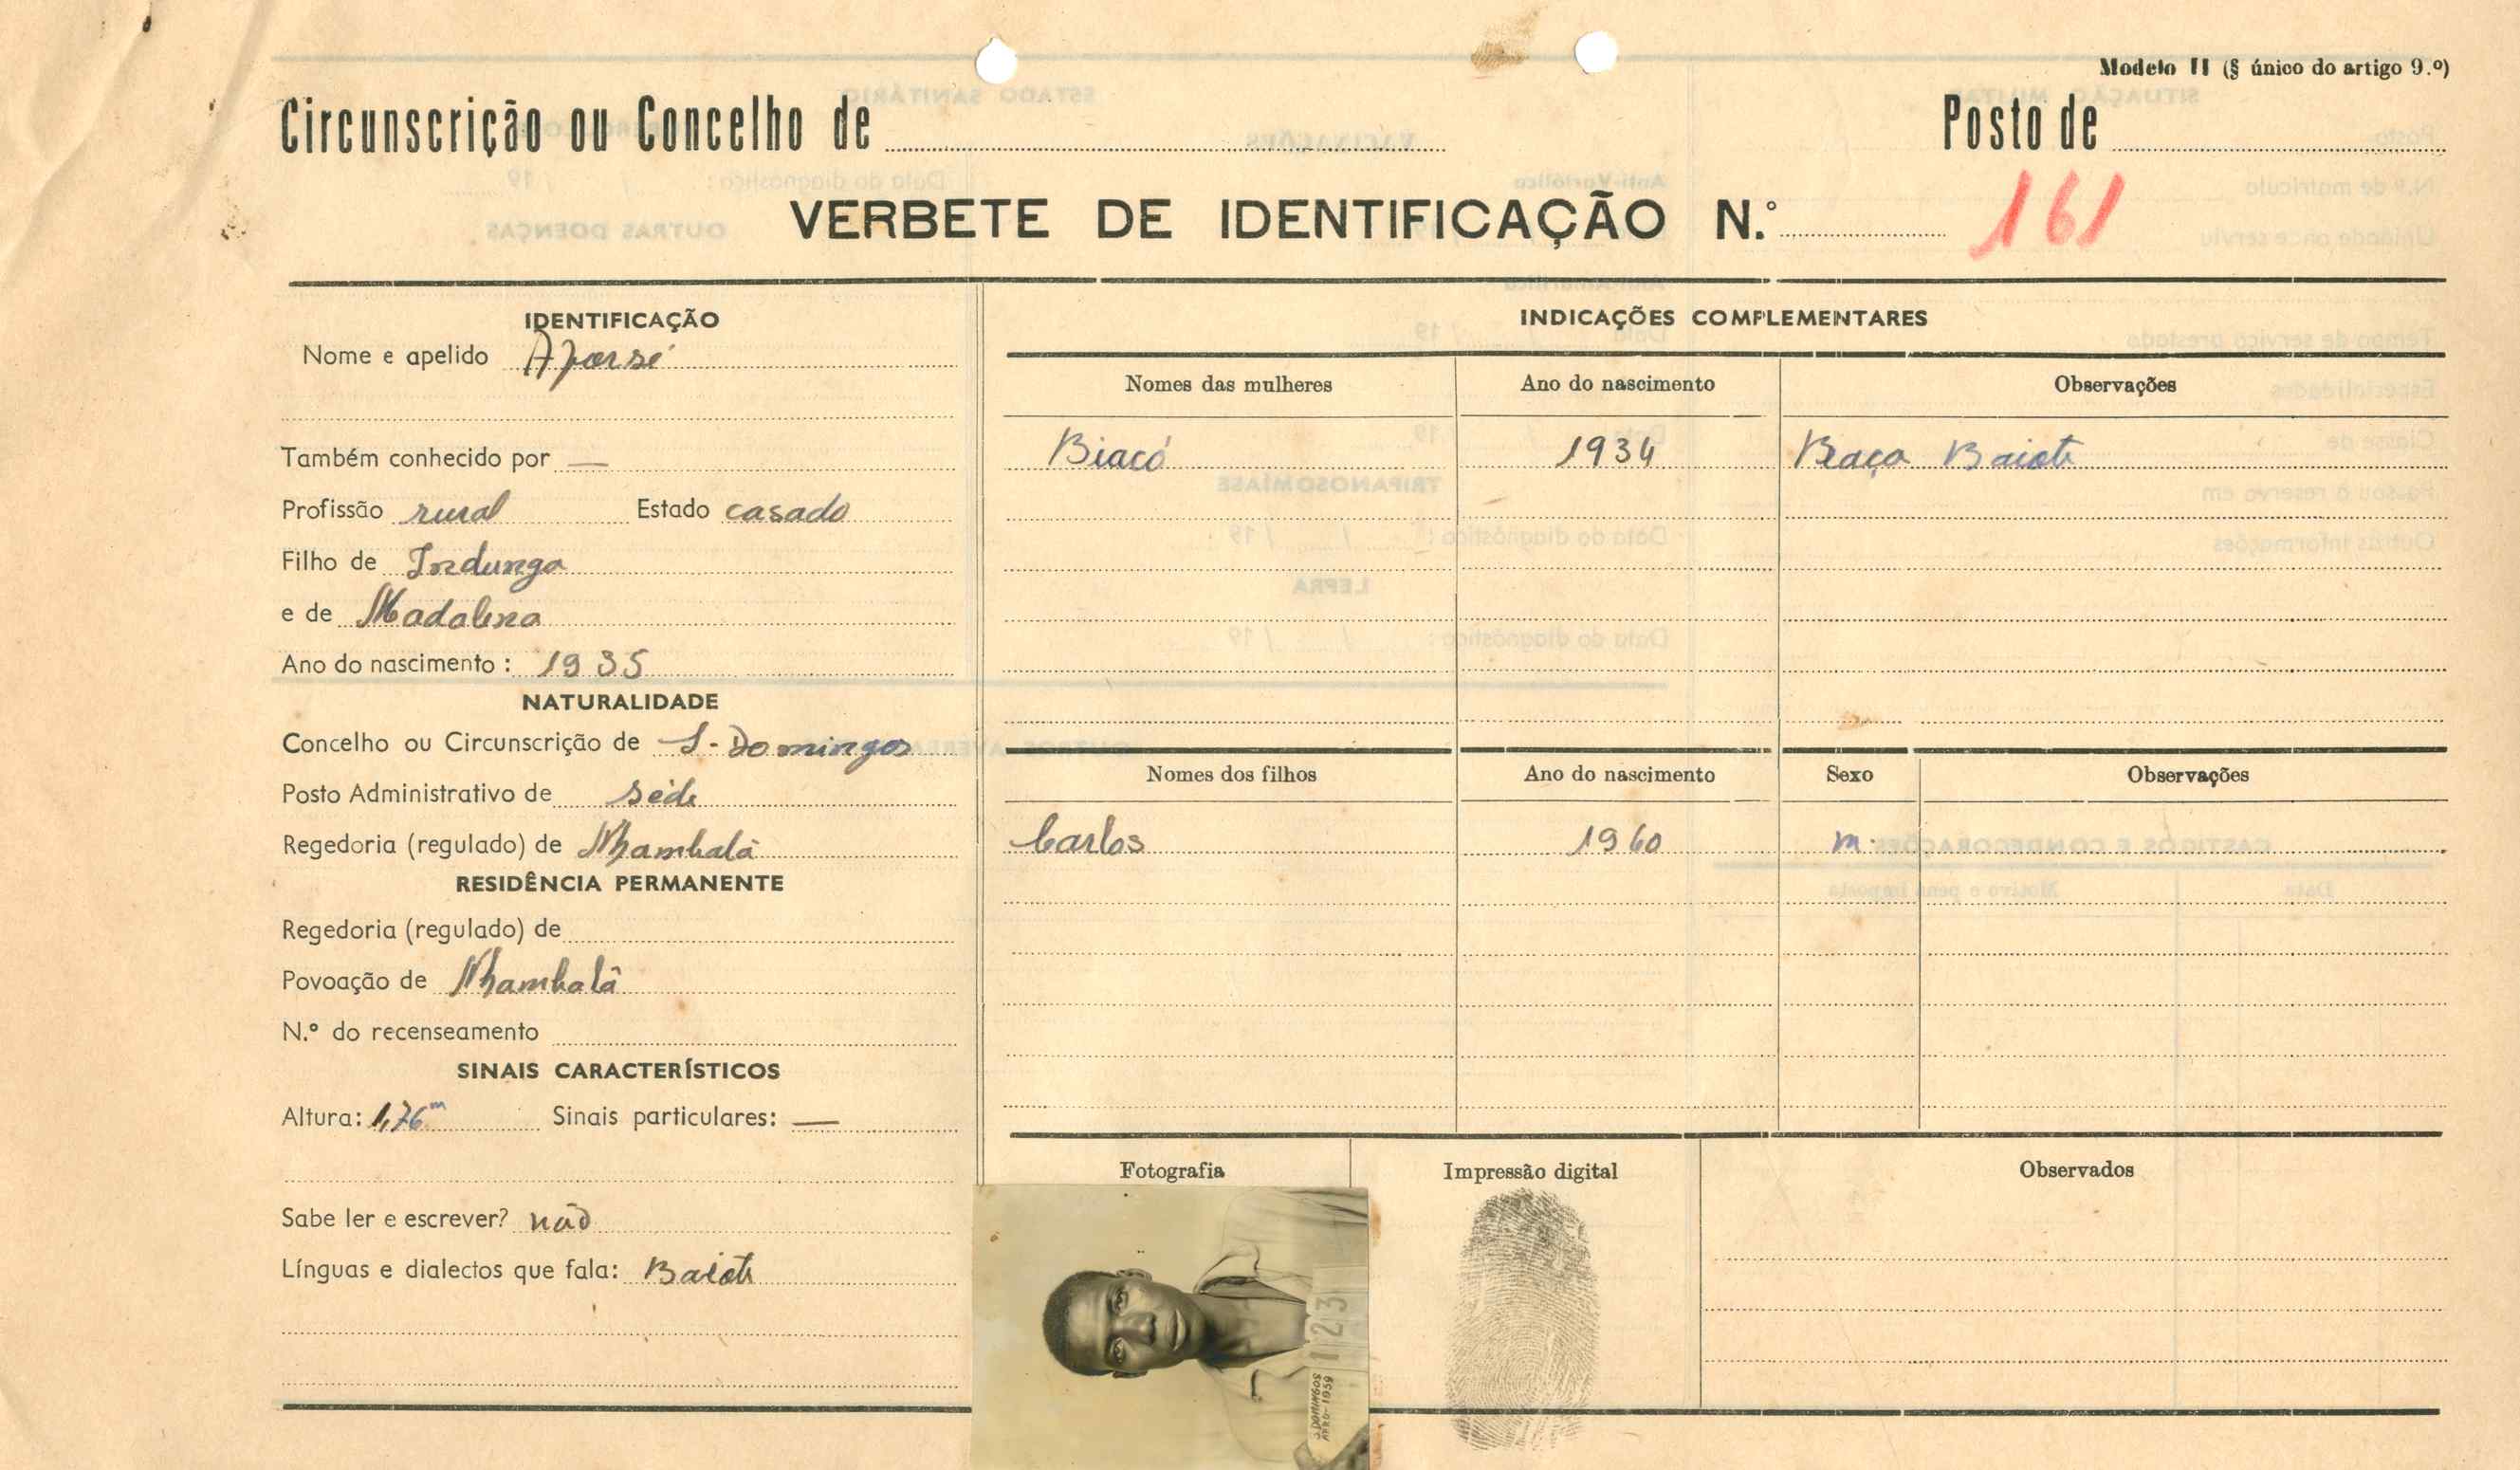 Modelo II (§ único do artigo 9.º)
Circunscrição ou Concelho de
Posto de
VERBETE DE IDENTIFICAÇÃO N.º 161
IDENTIFICAÇÃO
Nome e apelido
Também conhecido por —
Profissão rural Estado casado
Filho de Indunga
e de Madalena
Ano do nascimento: 1935
NATURALIDADE
Concelho ou Circunscrição de S. Domingos
Posto Administrativo de Sede
Regedoria (regulado) de Nhambalã
RESIDÊNCIA PERMANENTE
Regedoria (regulado) de
Povoação de Nhambalã
N.º do recenseamento
SINAIS CARACTERÍSTICOS
Altura: 1,76m Sinais particulares: —
Sabe ler e escrever? não
Línguas e dialectos que fala: Baiote
INDICAÇÕES COMPLEMENTARES
Nomes das mulheres Ano do nascimento Observações
Biacó 1934 Raça Baiote
Nomes dos filhos Ano do nascimento Sexo Observações
Carlos 1960 m.
Fotografia Impressão digital Observados
123
S. DOMINGOS
ANO-1959